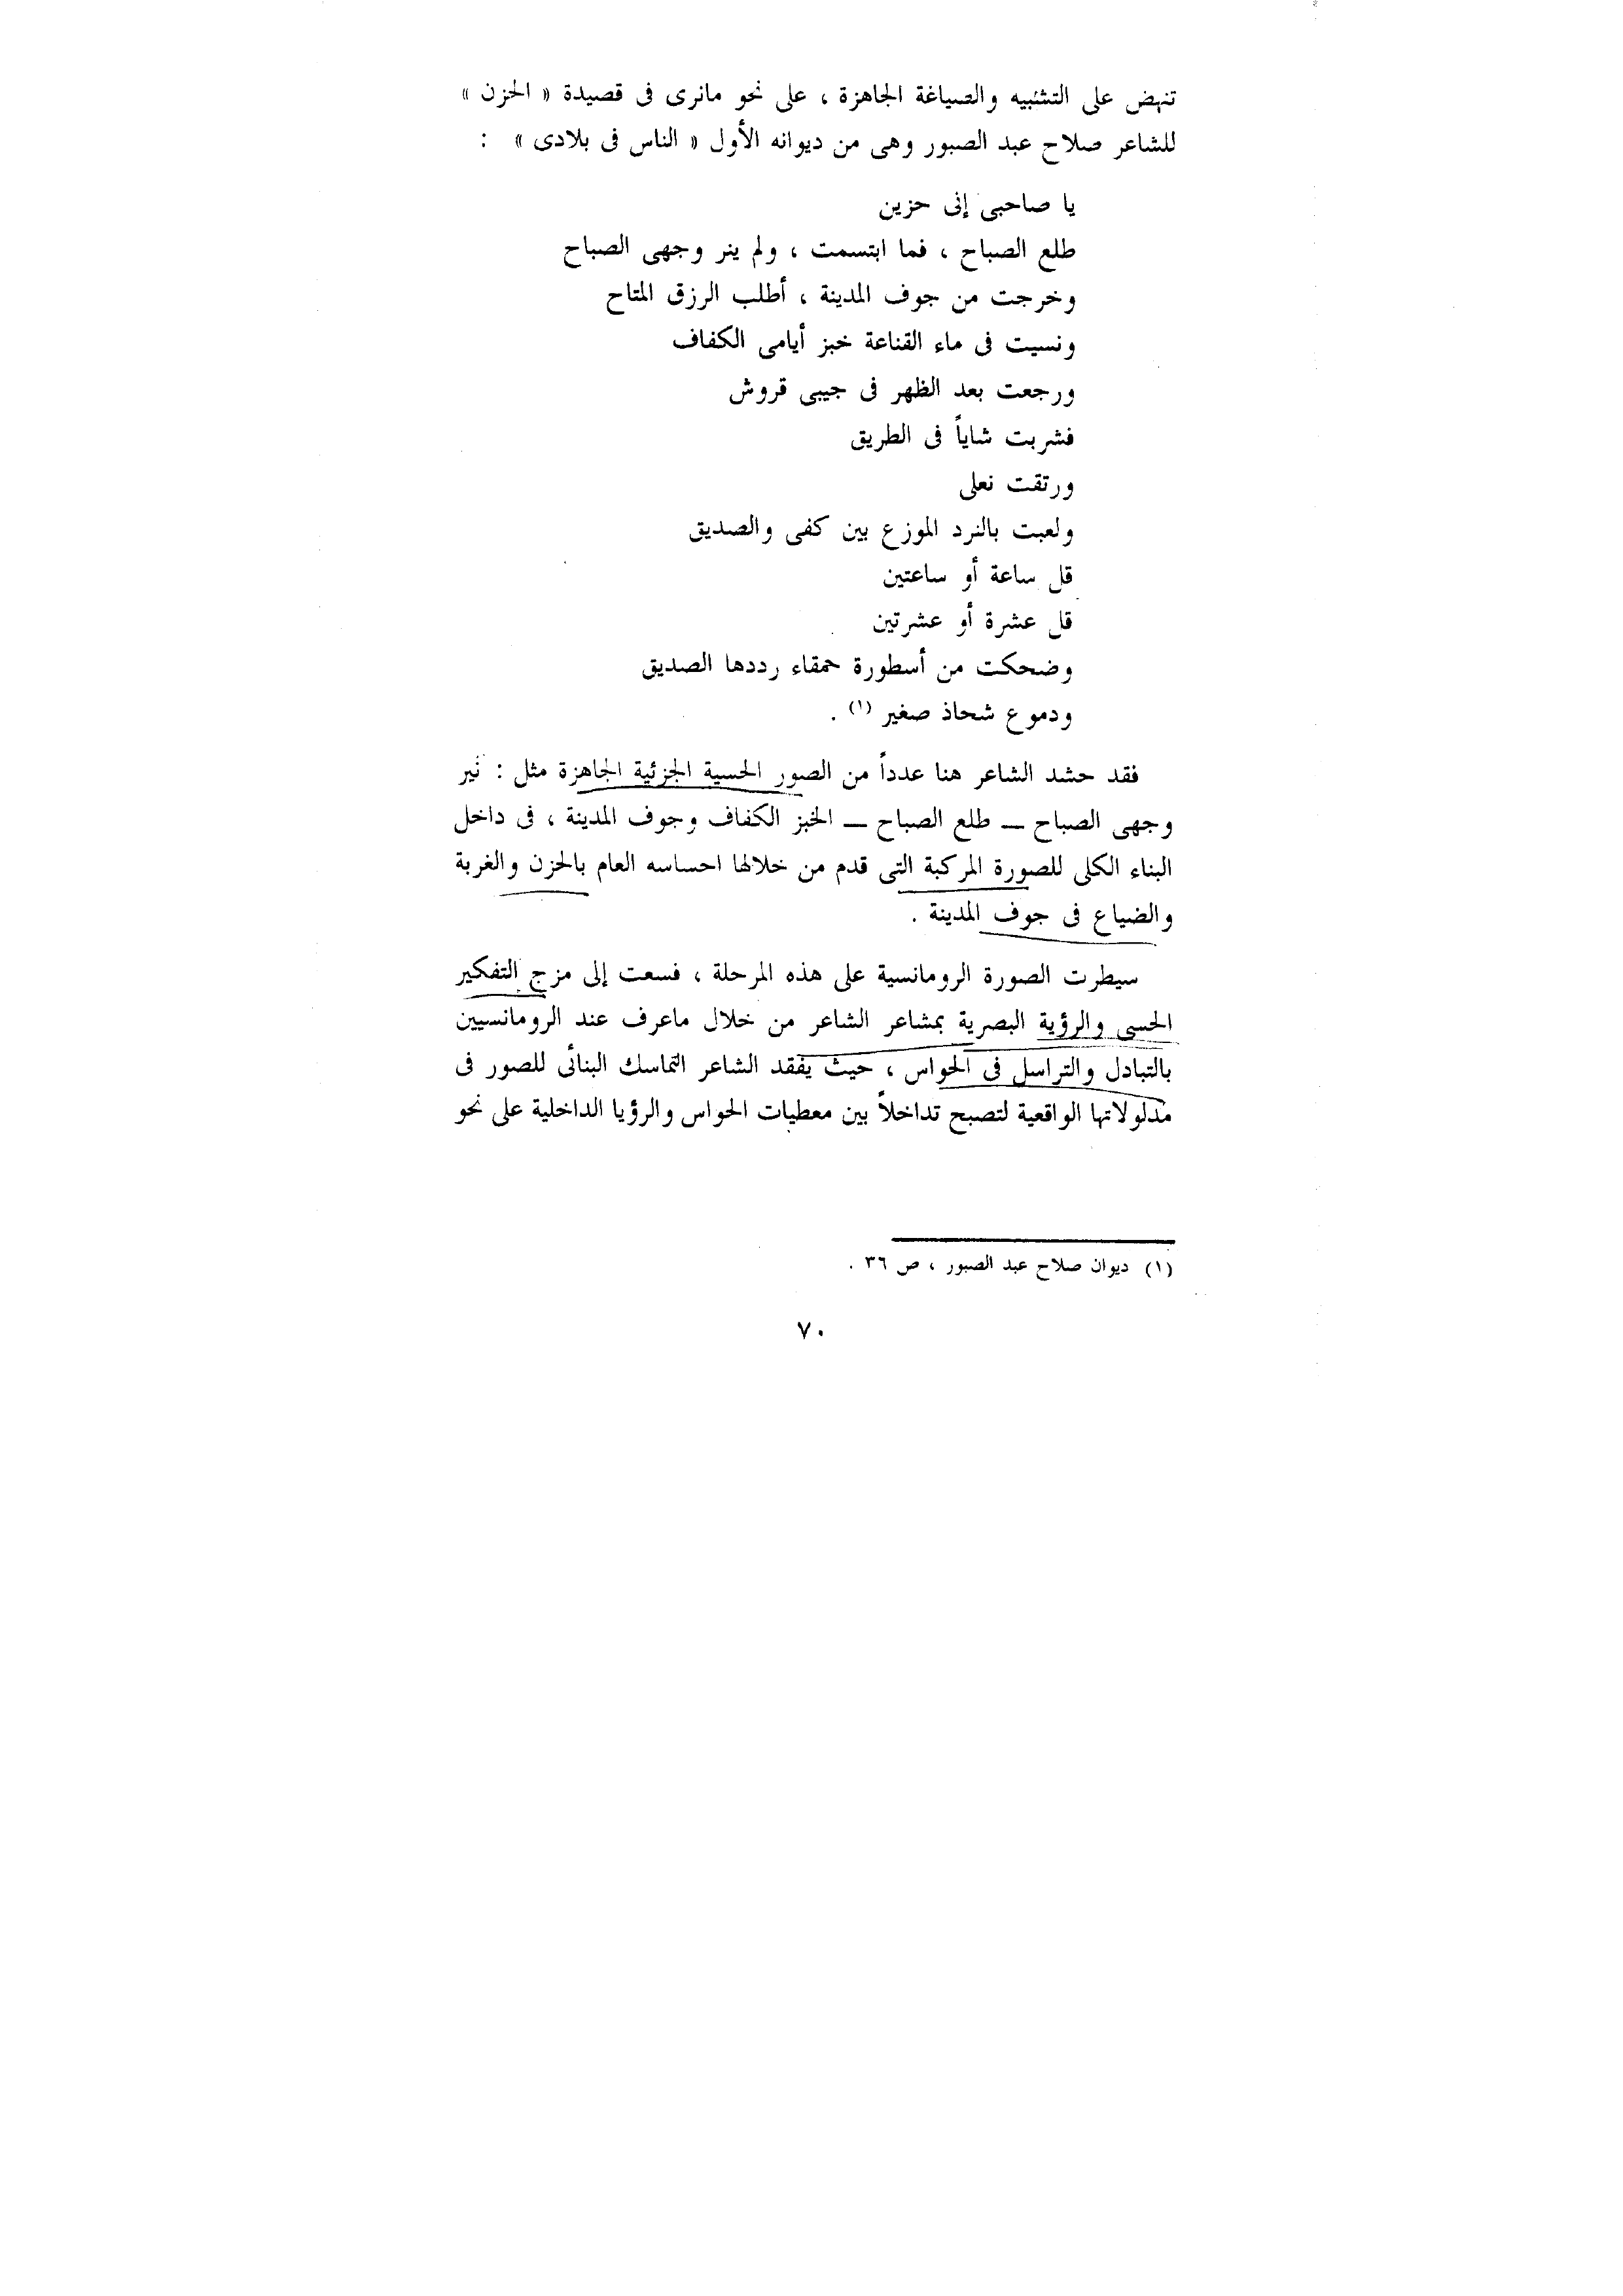 تنهض على التشبيه والصياغة الجاهزة ، على نحو مانرى فى قصيدة « الحزن »
للشاعر صلاح عبد الصبور وهى من ديوانه الأول « الناس فى بلادى » :
يا صاحبى إنى حزين
طلع الصباح ، فما ابتسمت ، ولم ينر وجهى الصباح
وخرجت من جوف المدينة ، أطلب الرزق المتاح
ونسيت فى ماء القناعة خبز أيامى الكفاف
ورجعت بعد الظهر فى جيبى قروش
فشربت شاياً فى الطريق
ورتقت نعلى
ولعبت بالنرد الموزع بين كفى والصديق
قل ساعة أو ساعتين
قل عشرة أو عشرتين
وضحكت من أسطورة حمقاء رددها الصديق
ودموع شحاذ صغير (١) .
فقد حشد الشاعر هنا عدداً من الصور الحسية الجزئية الجاهزة مثل : نير
وجهى الصباح ــ طلع الصباح ــ الخبز الكفاف وجوف المدينة ، فى داخل
البناء الكلى للصورة المركبة التى قدم من خلالها احساسه العام بالحزن والغربة
والضياع فى جوف المدينة .
سيطرت الصورة الرومانسية على هذه المرحلة ، فسعت إلى مزج التفكير
الحسى والرؤية البصرية بمشاعر الشاعر من خلال ماعرف عند الرومانسيين
بالتبادل والتراسل فى الحواس ، حيث يفقد الشاعر التماسك البنائى للصور فى
مدلولاتها الواقعية لتصبح تداخلاً بين معطيات الحواس والرؤيا الداخلية على نحو
(١) ديوان صلاح عبد الصبور ، ص ٣٦ .
٧٠